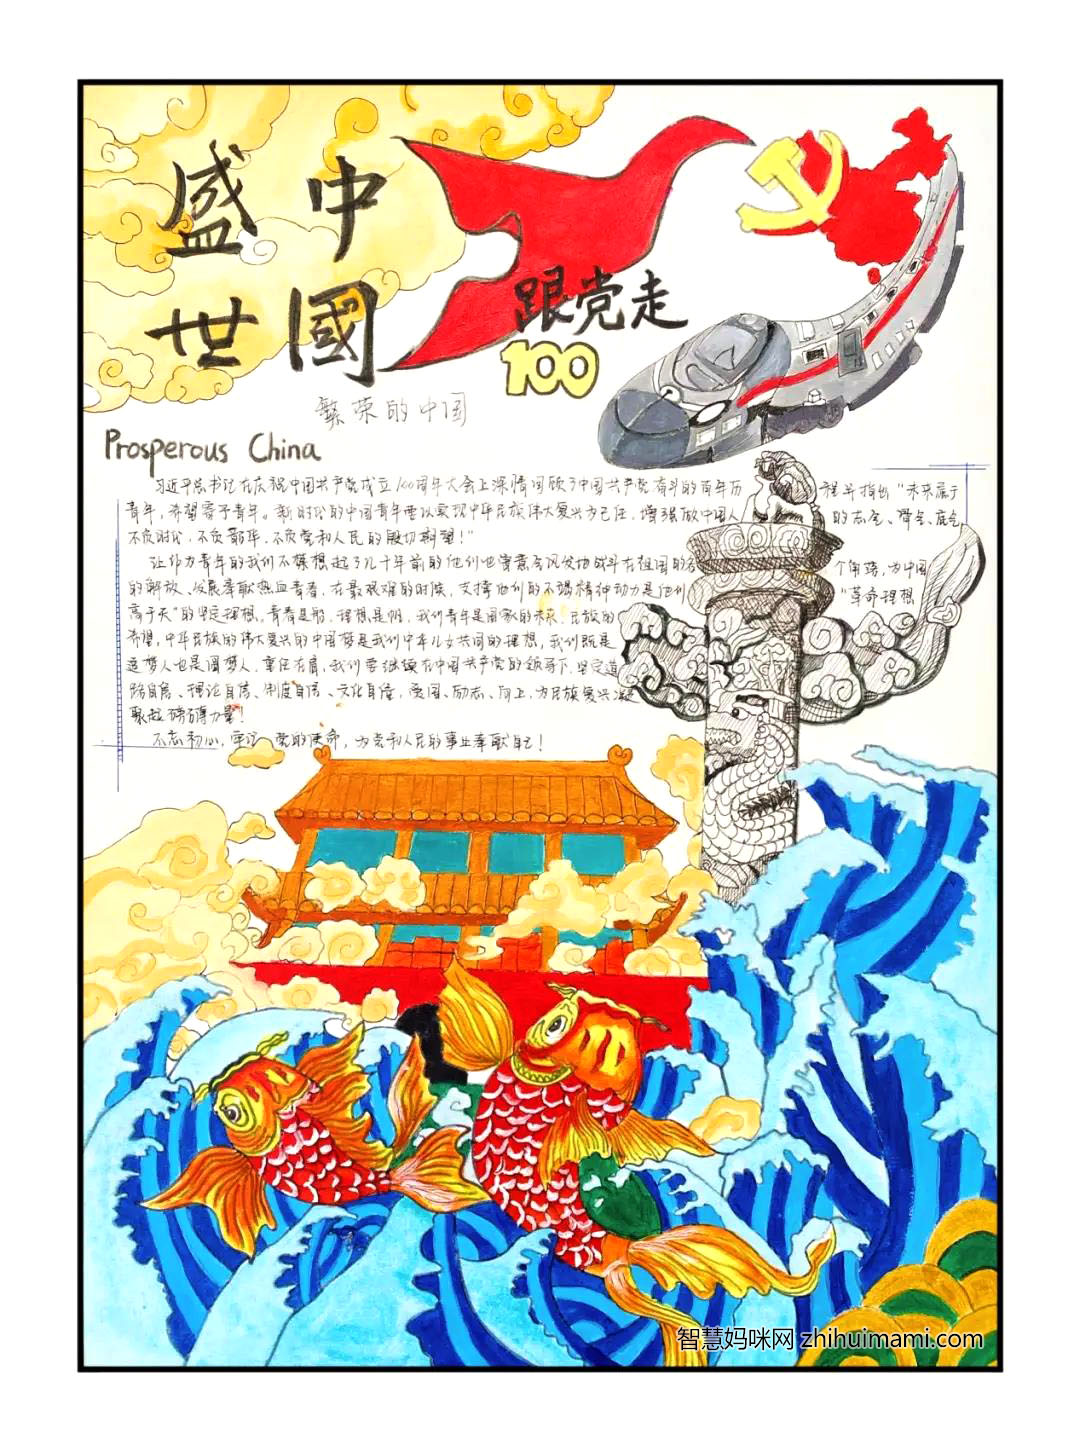 盛世
中國
跟党走
100
繁荣的中国
Prosperous China
习近平总书记在庆祝中国共产党成立100周年大会上深情回顾了中国共产党奋斗的百年历程并指出“未来属于
青年,希望寄予青年。新时代的中国青年要以实现中华民族伟大复兴为己任,增强做中国人的志气、骨气、底气
不负时代,不负韶华,不负党和人民的殷切期望!”
让作为青年的我们不禁想起了几十年前的他们也曾意气风发地战斗在祖国的各个角落,为中国
的解放、发展奉献热血青春,在最艰难的时候,支撑他们的不竭精神动力是他们“革命理想
高于天”的坚定理想。青春是船,理想是帆,我们青年是国家的未来,民族的
希望,中华民族的伟大复兴的中国梦是我们中华儿女共同的理想,我们既是
追梦人也是圆梦人,重任在肩,我们要继续在中国共产党的领导下,坚定道
路自信、理论自信、制度自信、文化自信,爱国、励志、向上,为民族复兴凝
聚起磅礴力量!
不忘初心,牢记党的使命,为党和人民的事业奉献自己!
智慧妈咪网 zhihuimami.com